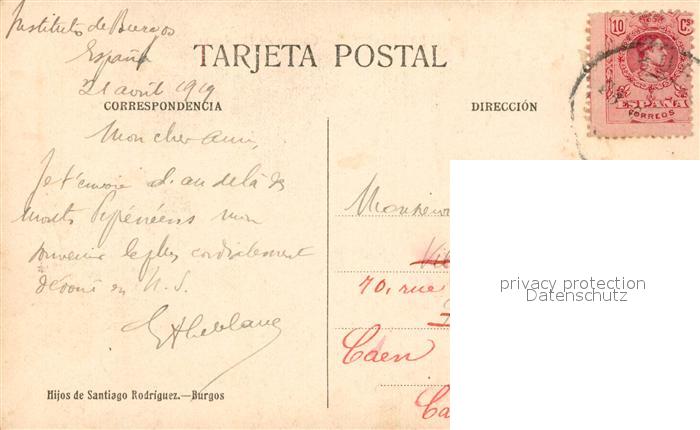 Instituto de Burgos
España
21 avril 1919
TARJETA POSTAL
10 Cs
ESPAÑA
CORREOS
CORRESPONDENCIA
DIRECCIÓN
Mon cher ami,
Je t'envoie d'au delà des
monts Pyrénéens mon
souvenir le plus cordialement
dévoué en N. S.
Monsieur
70, rue
Caen
Ca
privacy protection
Datenschutz
Hijos de Santiago Rodríguez.—Burgos